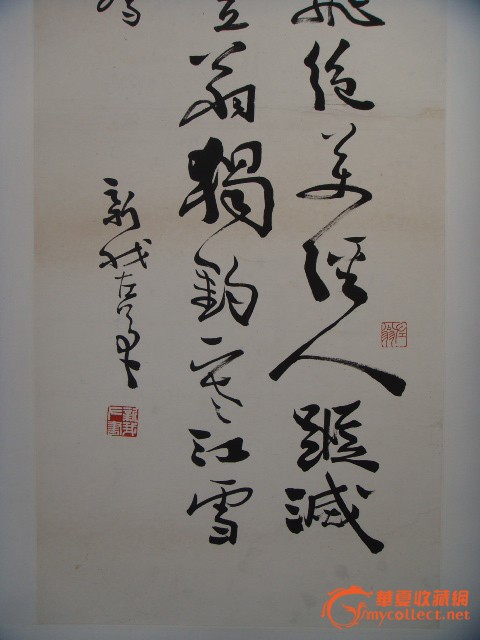 飛絶萬徑人蹤滅
笠翁獨釣寒江雪
新我左筆
華夏收藏網
mycollect.net